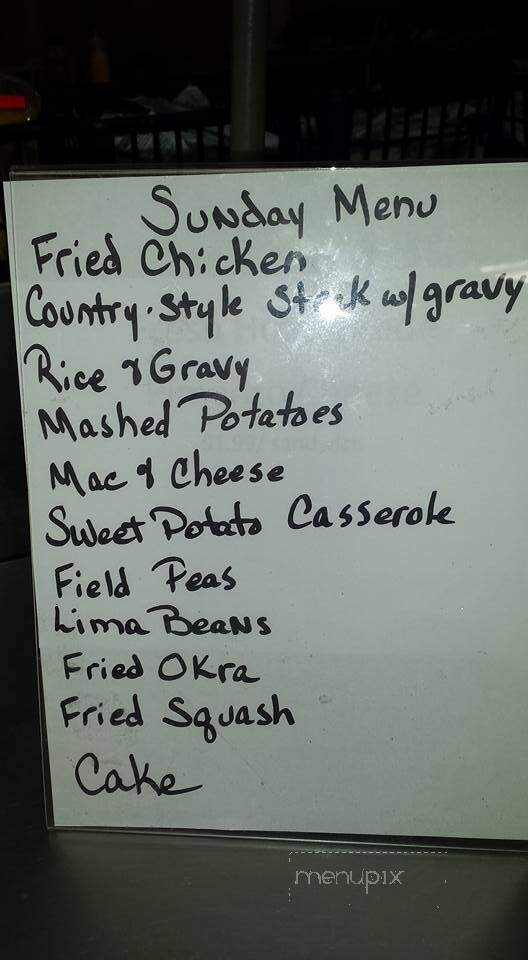 Sunday Menu
Fried Chicken
Country-Style Steak w/ gravy
Rice & Gravy
Mashed Potatoes
Mac & Cheese
Sweet Potato Casserole
Field Peas
Lima Beans
Fried Okra
Fried Squash
Cake
menupix